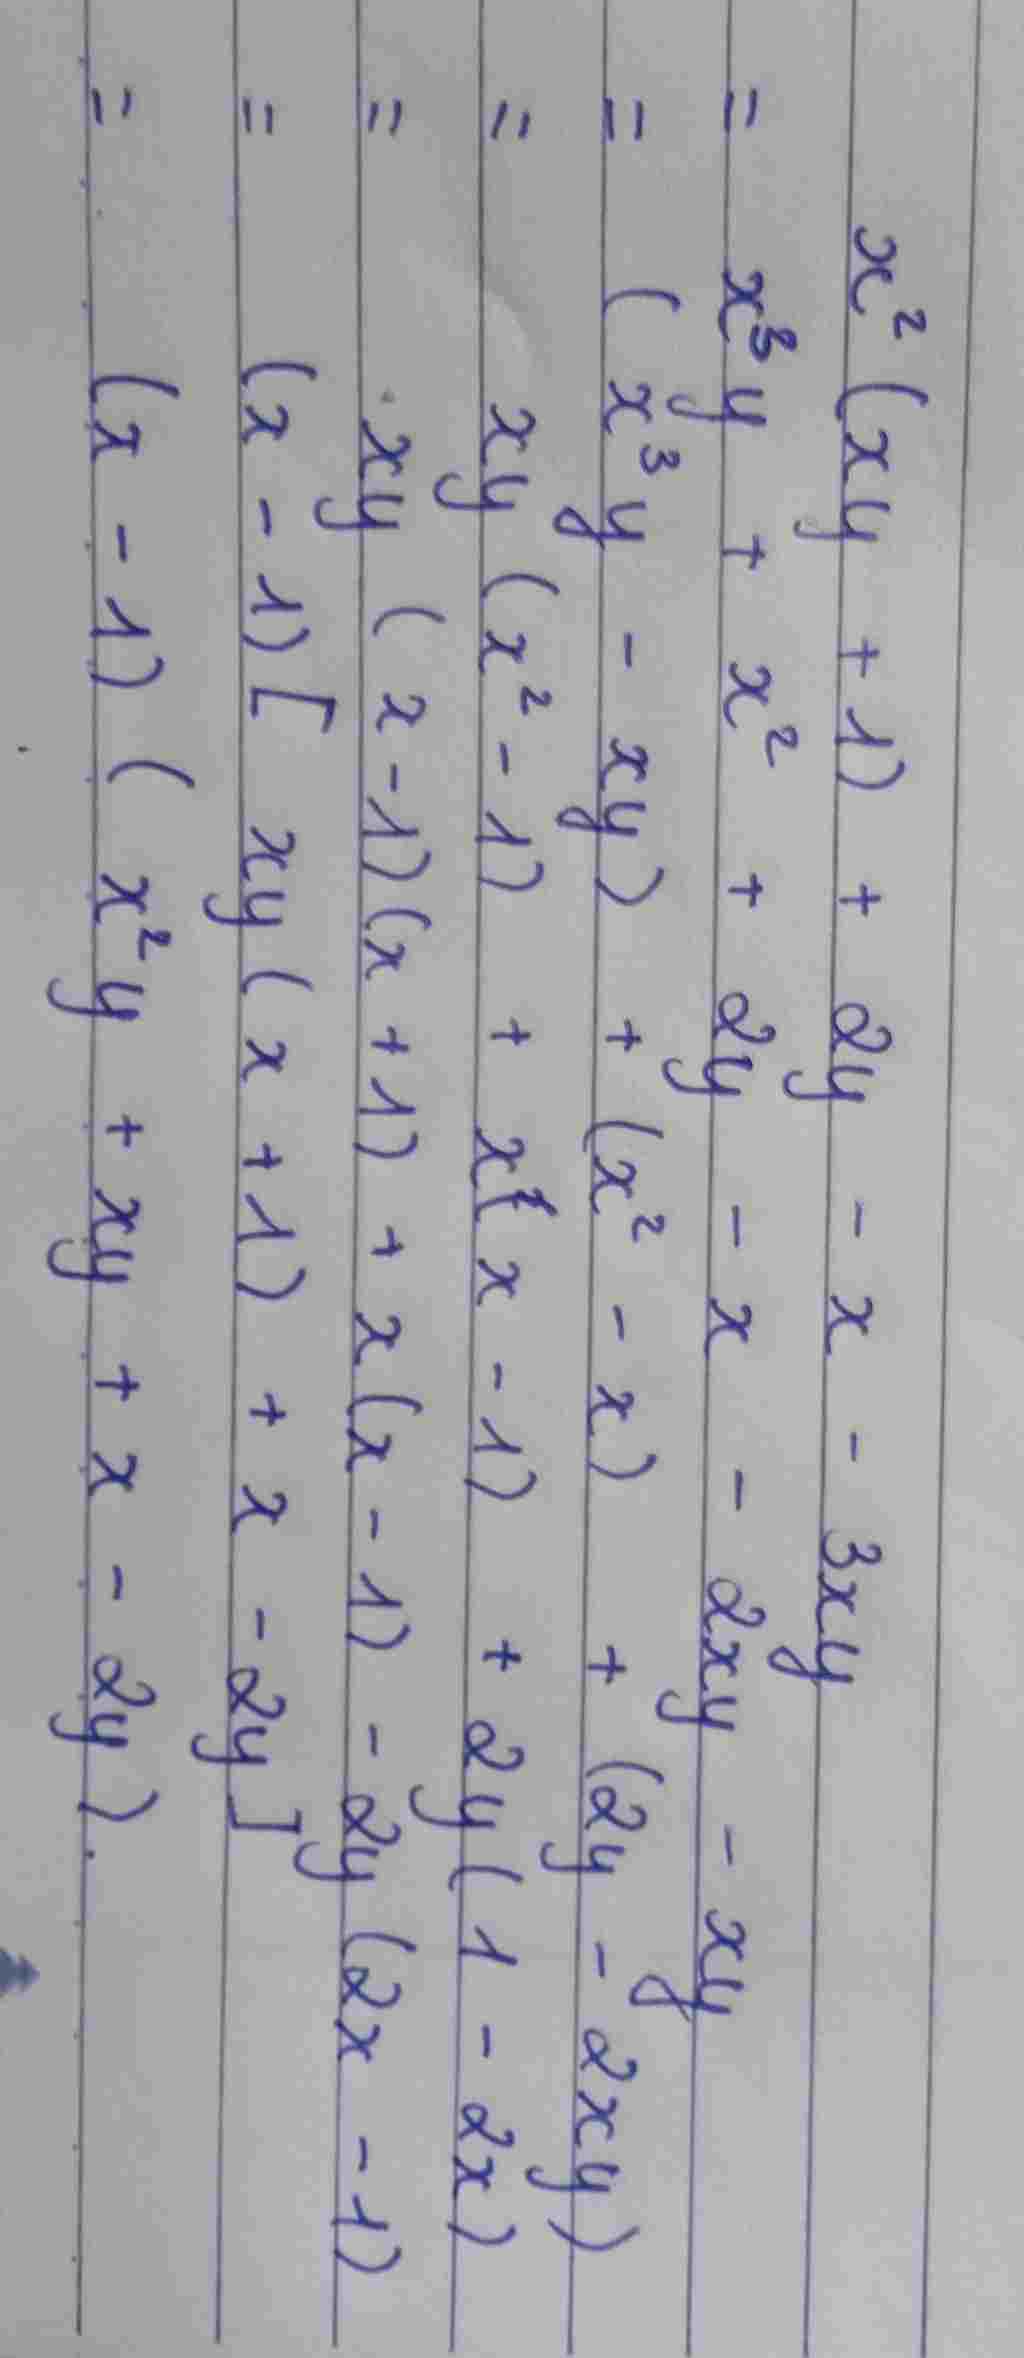 x²(xy + 1) + 2y - x - 3xy
= x³y + x² + 2y - x - 2xy - xy
= (x³y - xy) + (x² - x) + (2y - 2xy)
= xy(x² - 1) + x(x - 1) + 2y(1 - 2x)
= xy(x - 1)(x + 1) + x(x - 1) - 2y(2x - 1)
= (x - 1)[xy(x + 1) + x - 2y]
= (x - 1)(x²y + xy + x - 2y).